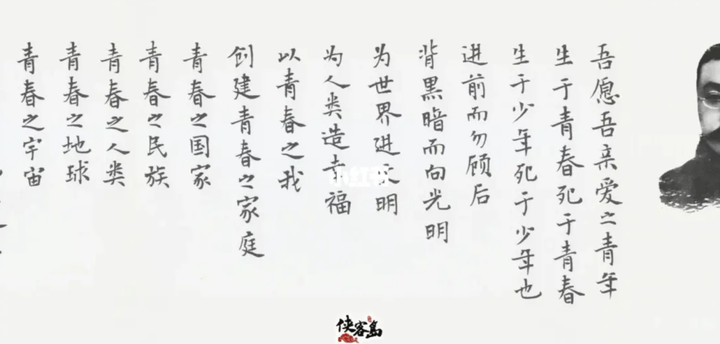 吾愿吾亲爱之青年
生于青春死于青春
生于少年死于少年也
进前而勿顾后
背黑暗而向光明
为世界进文明
为人类造幸福
以青春之我
创建青春之家庭
青春之国家
青春之民族
青春之人类
青春之地球
青春之宇宙
侠客岛